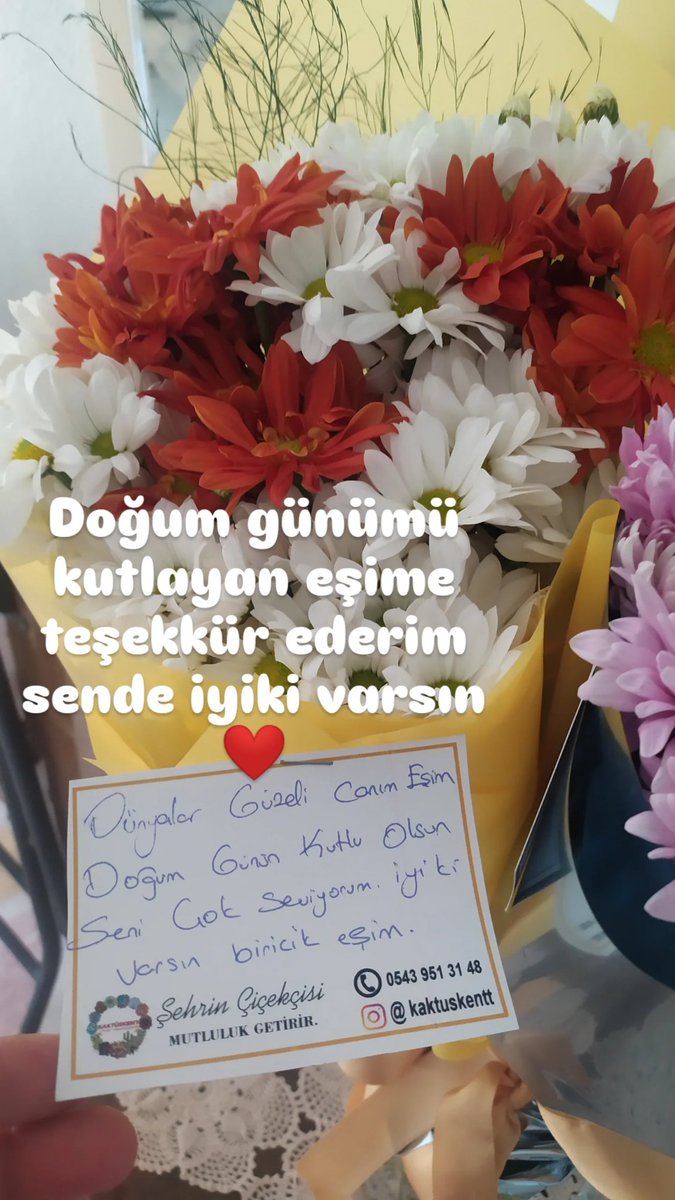 Doğum günümü
kutlayan eşime
teşekkür ederim
sende iyiki varsın
❤️
Dünyalar Güzeli Canım Eşim
Doğum Günün Kutlu Olsun
Seni Çok Seviyorum. iyi ki
varsın biricik eşim.
KAKTÜSKENTT
Şehrin Çiçekçisi
MUTLULUK GETİRİR.
0543 951 31 48
@kaktuskentt